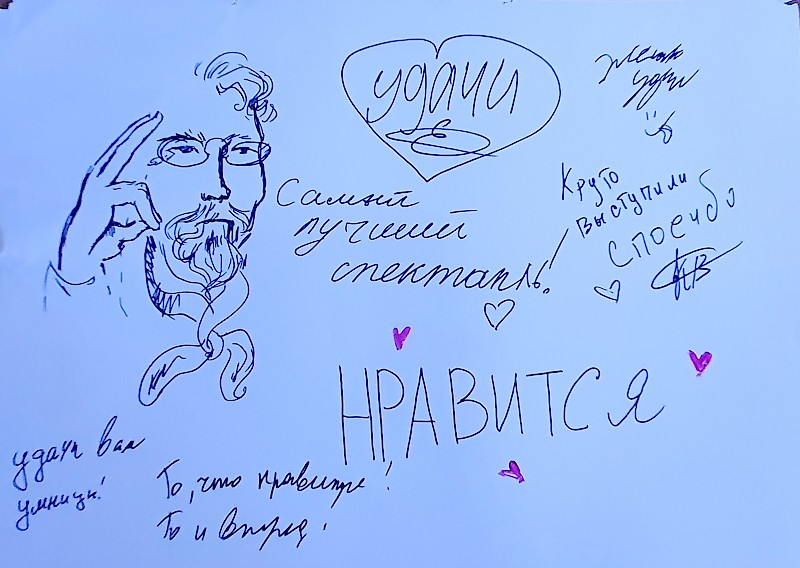 удачи
Желаю
удачи
Самый
лучший
спектакль!
Круто
выступили
спасибо
НРАВИТСЯ
удачи вам
умницы!
То, что нравится!
Так и вперед!